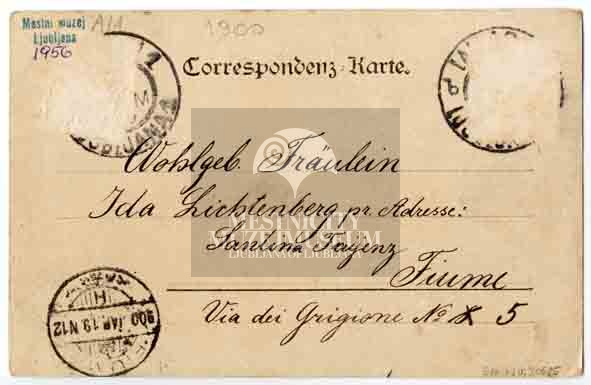 Mestni muzej
Ljubljana
1956
A1A
1900
Correspondenz-Karte.
Wohlgeb. Fräulein
Ida Lichtenberg pr. Adresse:
Santina
Fiume
Via dei Grigione No 5
MESTNI CITY
MUZEJ MUSEUM
LJUBLJANA OF LJUBLJANA
900 JAN. 19 N12
FIUME